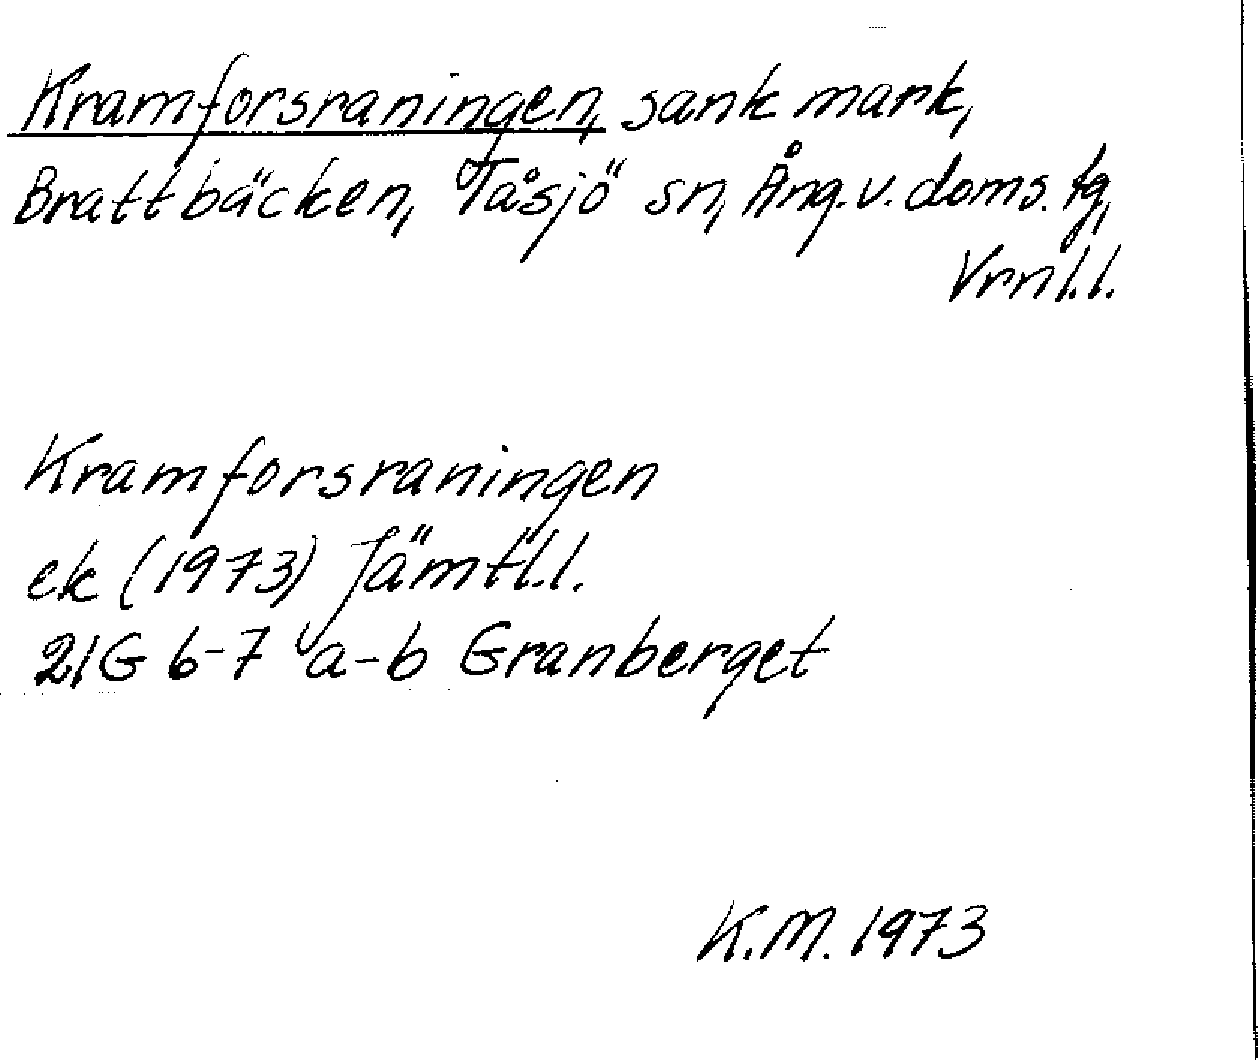 Kramforsraningen, sank mark,
Brattbäcken, Tåsjö sn, Ång.v.doms.tg,
Vrnl.l.
Kramforsraningen
ek (1973) Jämtl.l.
21G 6-7 a-b Granberget
K.M. 1973